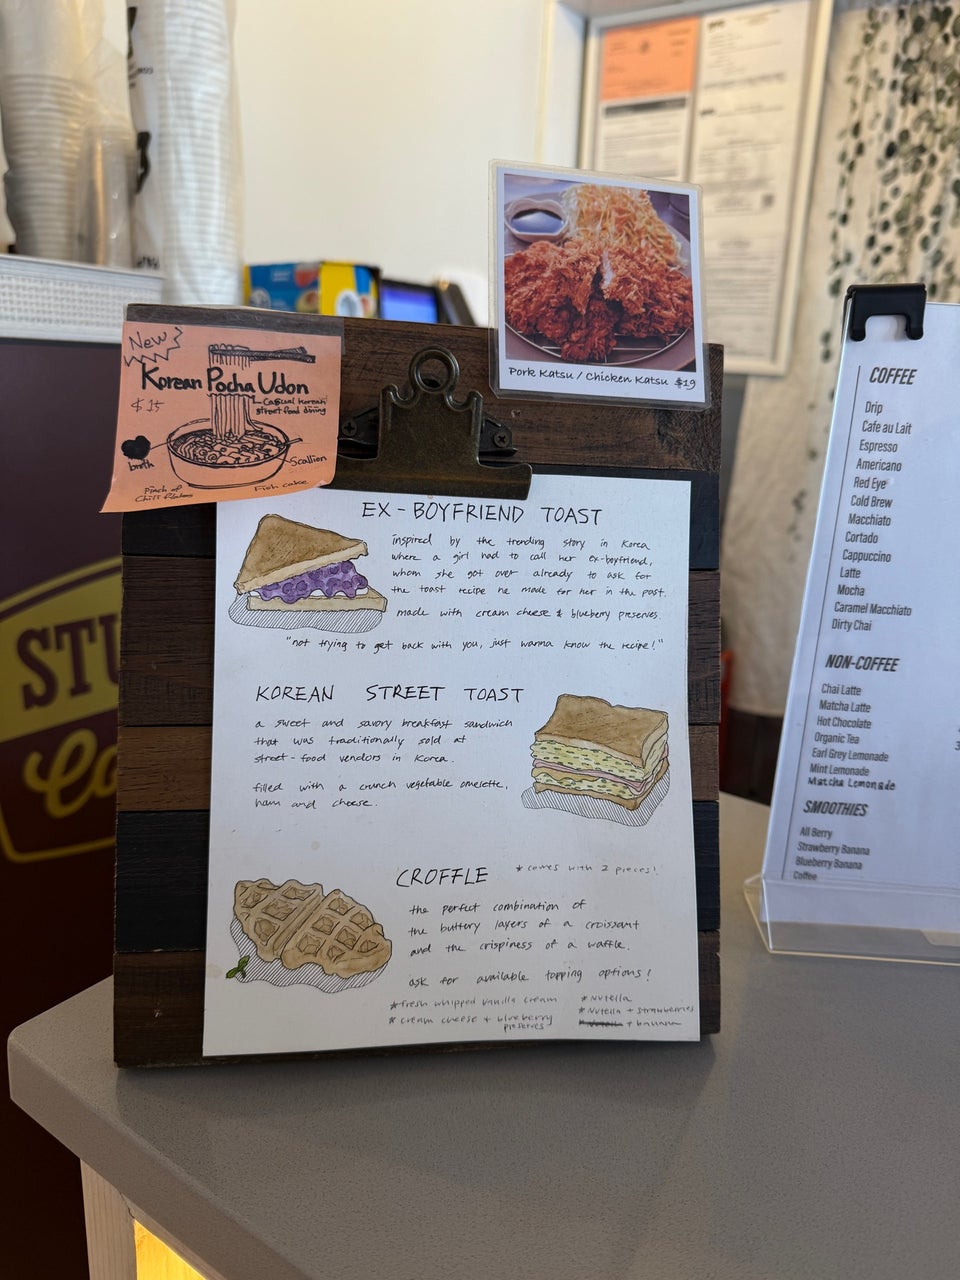 New
Korean Pocha Udon
$15
Casual Korean
street food dining
broth
Scallion
Pinch of
Chili flakes
Fish cake
Pork Katsu / Chicken Katsu $19
EX-BOYFRIEND TOAST
inspired by the trending story in Korea
where a girl had to call her ex-boyfriend,
whom she got over already to ask for
the toast recipe he made for her in the past.
made with cream cheese & blueberry preserves.
"not trying to get back with you, just wanna know the recipe!"
KOREAN STREET TOAST
a sweet and savory breakfast sandwich
that was traditionally sold at
street-food vendors in Korea.
filled with a crunch vegetable omelette,
ham and cheese.
CROFFLE *comes with 2 pieces!
the perfect combination of
the buttery layers of a croissant
and the crispiness of a waffle.
ask for available topping options!
*fresh whipped vanilla cream
*cream cheese + blueberry
preserves
*Nutella
*Nutella + strawberries
+ banana
COFFEE
Drip
Cafe au Lait
Espresso
Americano
Red Eye
Cold Brew
Macchiato
Cortado
Cappuccino
Latte
Mocha
Caramel Macchiato
Dirty Chai
NON-COFFEE
Chai Latte
Matcha Latte
Hot Chocolate
Organic Tea
Earl Grey Lemonade
Mint Lemonade
Matcha Lemonade
SMOOTHIES
All Berry
Strawberry Banana
Blueberry Banana
Coffee
STU
Ca